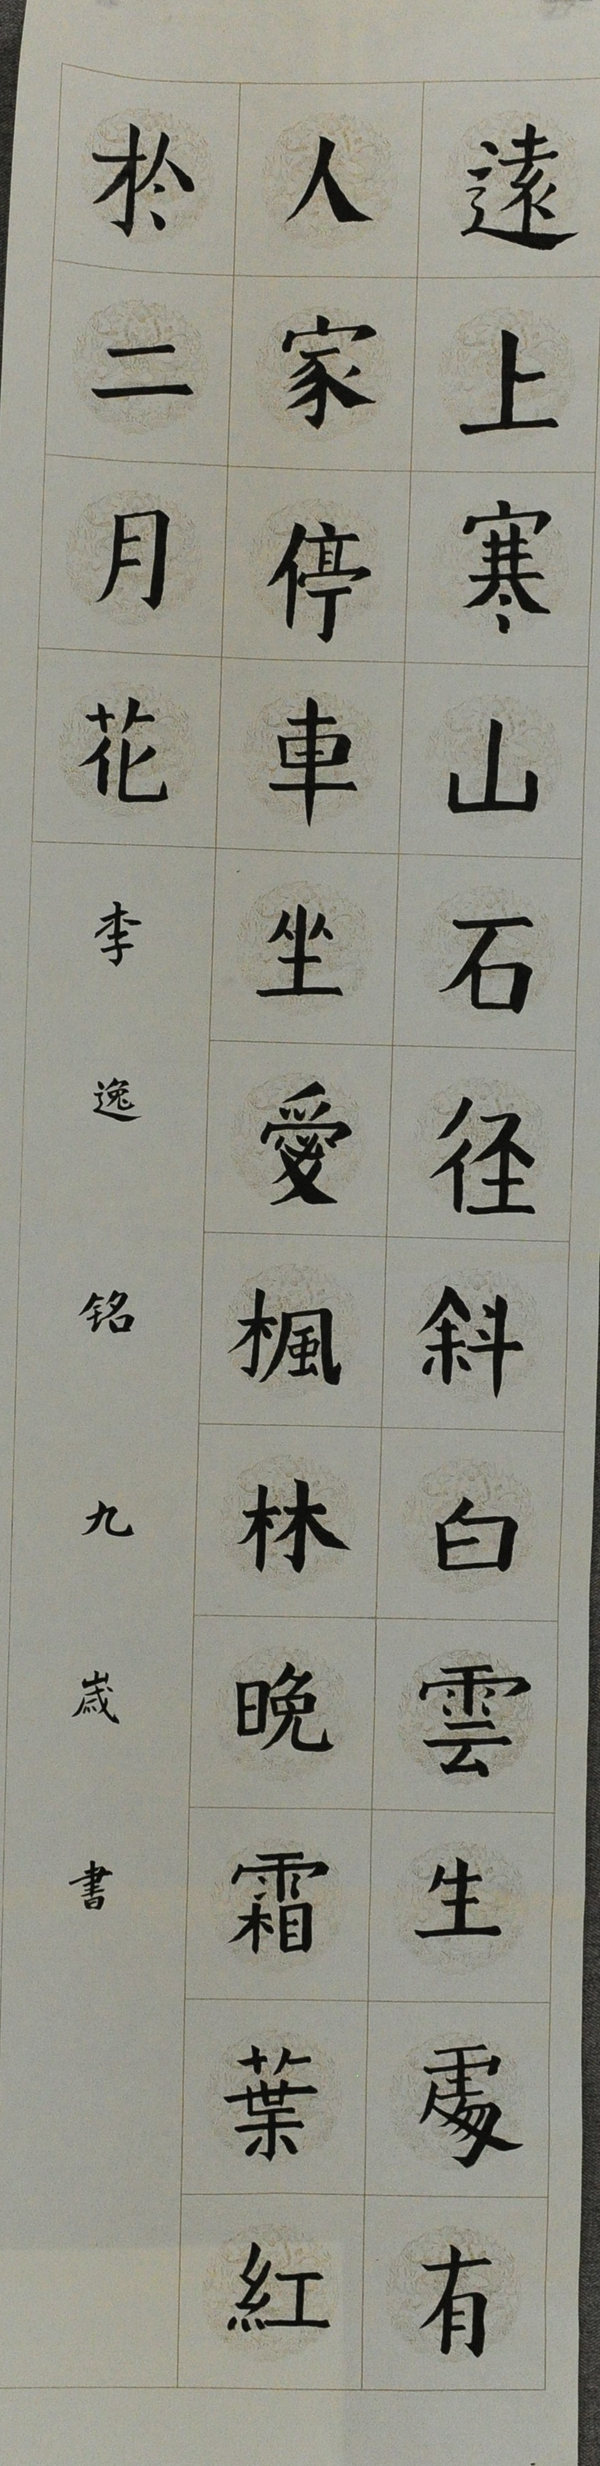 遠上寒山石径斜白雲生處有
人家停車坐愛楓林晚霜葉紅
於二月花
李逸铭九歲書